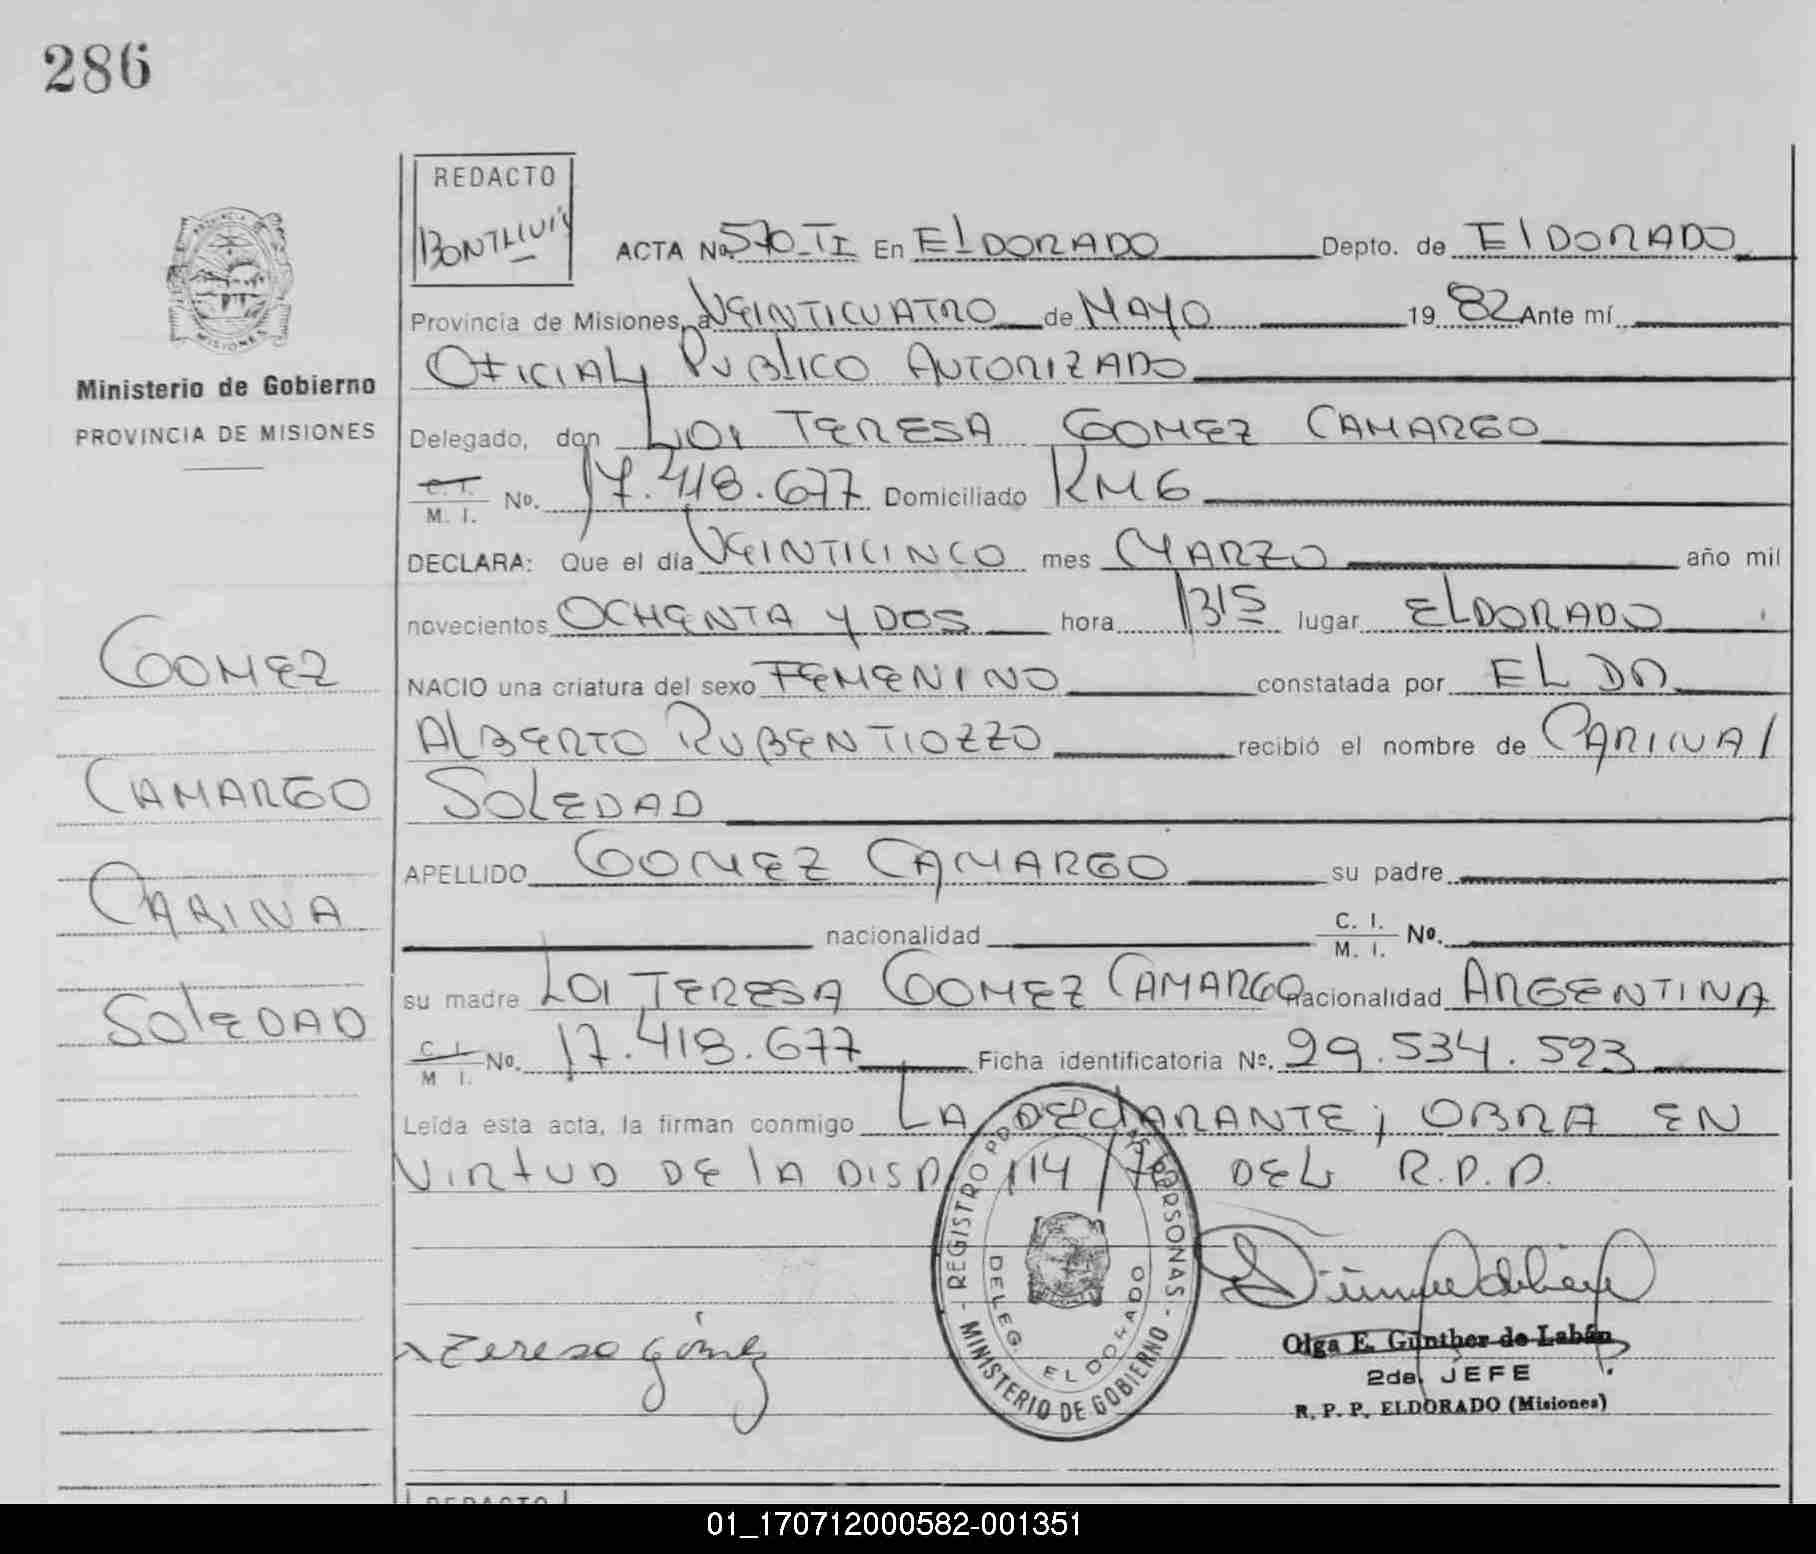 286
REDACTO
ACTA No. 570-TI En ELDORADO Depto. de ElDORADO
Provincia de Misiones, a VEINTICUATRO de MAYO 1982 Ante mí
OFICIAL PUBLICO AUTORIZADO
PROVINCIA DE MISIONES
Ministerio de Gobierno
PROVINCIA DE MISIONES
Delegado, don LOI TERESA GOMEZ CAMARGO
C. I. M. I. No. 17.418.677 Domiciliado KM 6
DECLARA: Que el día VEINTICINCO mes MARZO año mil
novecientos OCHENTA Y DOS hora 1315 lugar ELDORADO
NACIO una criatura del sexo FEMENINO constatada por EL DR
ALBERTO RUBEN TIOZZO recibió el nombre de CARINA/
SOLEDAD
APELLIDO GOMEZ CAMARGO su padre
nacionalidad C. I. M. I. Nº.
su madre LOI TERESA GOMEZ CAMARGO nacionalidad ARGENTINA
C. I. M. I. No. 17.418.677 Ficha identificatoria Nº. 29.534.523
Leída esta acta, la firman conmigo LA DEClARANTE; OBRA EN
VIRTUD DE lA DISP 114/ DEL R.P.P.
GOMEZ
CAMARGO
CARINA
SOlEDAD
REGISTRO PROV. DE LAS PERSONAS - MINISTERIO DE GOBIERNO -
DELEG. ELDORADO
Teresa Gómez
Olga E. Günther de Labán
2da. JEFE
R. P. P. ELDORADO (Misiones)
REDACTO
01_170712000582-001351